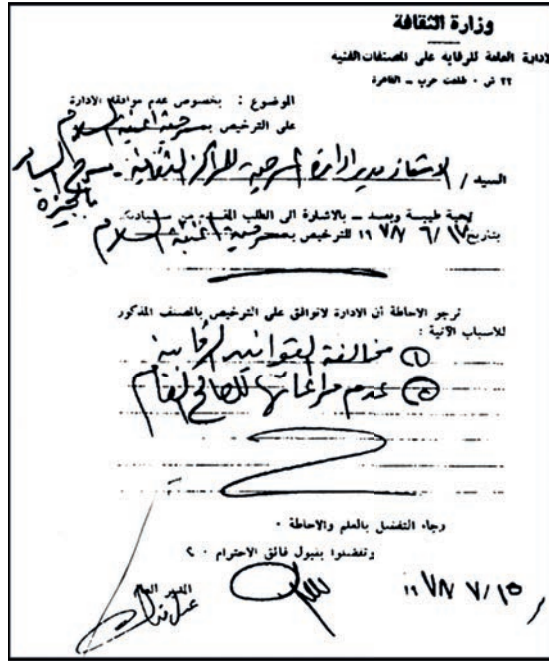 وزارة الثقافة
الادارة العامة للرقابة على المصنفات الفنية
٢٢ ش ٠ طلعت حرب ــ القاهرة
الموضوع : بخصوص عدم موافقة الادارة
على الترخيص بمسرحية أغنية السلام
السيد / الاستاذ مدير إدارة المسرحية للمراكز الثقافية ـ مسرح السامر
بالجيزة
تحية طيبة وبعد ــ بالاشارة الى الطلب المقدم من سيادتكم
بتاريخ ١٧/ ٦/ ١٩٧٨ للترخيص بمسرحية أغنية السلام
نرجو الاحاطة أن الادارة لاتوافق على الترخيص بالمصنف المذكور
للاسباب الآتية :
١ مخالفة لقوانين الرقابة
٢ عدم مراعاتها للصالح العام
رجاء التفضل بالعلم والاحاطة ٠
وتفضلوا بقبول فائق الاحترام ٠ ٢
المدير العام
١٥/ ٧/ ١٩٧٨